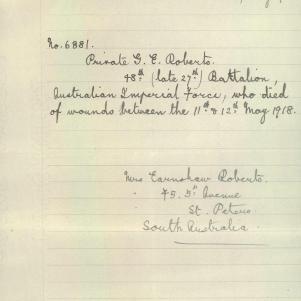 No. 6881.
Private G. E. Roberts.
48th (late 27th) Battalion,
Australian Imperial Force, who died
of wounds between the 11th & 12th May 1918.
Mrs Earnshaw Roberts.
45. 5th Avenue
St. Peters
South Australia